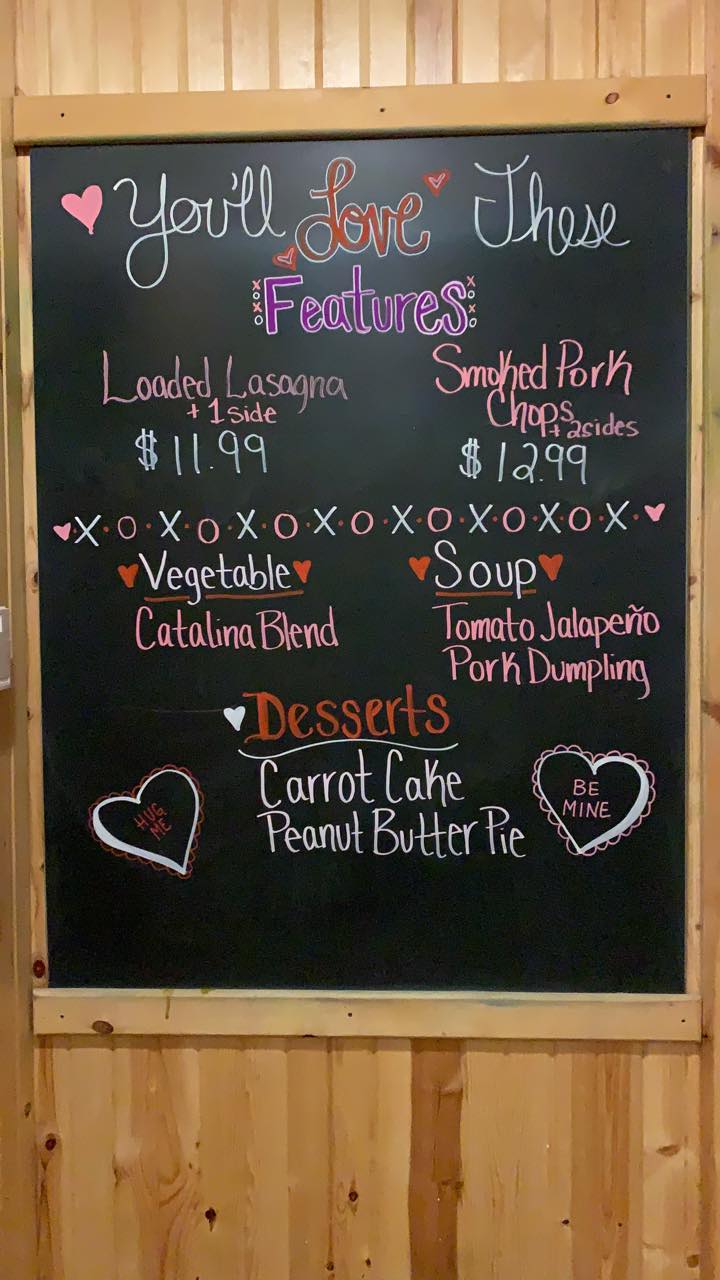 You'll Love These
Features
Loaded Lasagna
+ 1 side
$11.99
Smoked Pork
Chops + 2 sides
$12.99
X O X O X O X O X O X O X O X
Vegetable
Catalina Blend
Soup
Tomato Jalapeño
Pork Dumpling
Desserts
Carrot Cake
Peanut Butter Pie
HUG
ME
BE
MINE